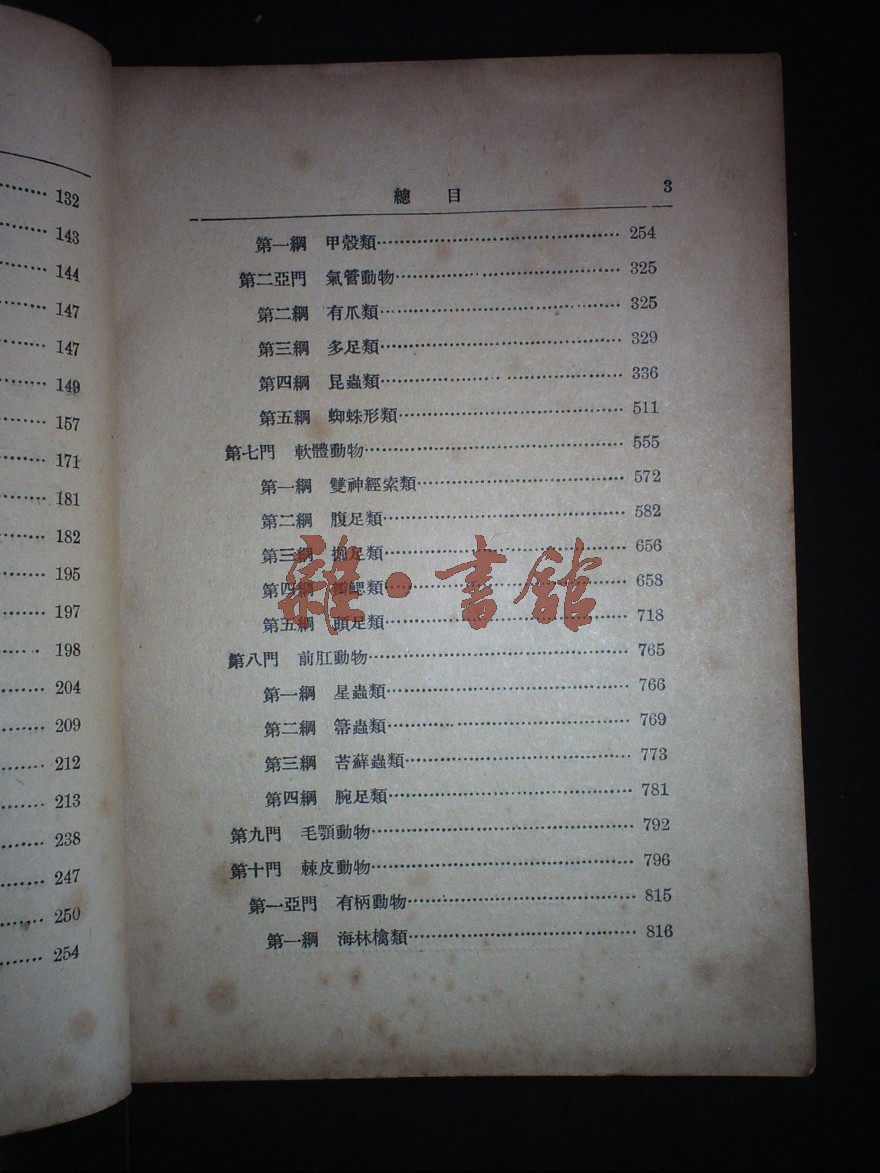 132
143
144
147
147
149
157
171
181
182
195
197
198
204
209
212
213
238
247
250
254
總 目 3
第一綱 甲殼類 254
第二亞門 氣管動物 325
第二綱 有爪類 325
第三綱 多足類 329
第四綱 昆蟲類 336
第五綱 蜘蛛形類 511
第七門 軟體動物 555
第一綱 雙神經索類 572
第二綱 腹足類 582
第三綱 掘足類 656
第四綱 瓣鰓類 658
第五綱 頭足類 718
第八門 前肛動物 765
第一綱 星蟲類 766
第二綱 箒蟲類 769
第三綱 苔蘚蟲類 773
第四綱 腕足類 781
第九門 毛顎動物 792
第十門 棘皮動物 796
第一亞門 有柄動物 815
第一綱 海林檎類 816
雜·書館